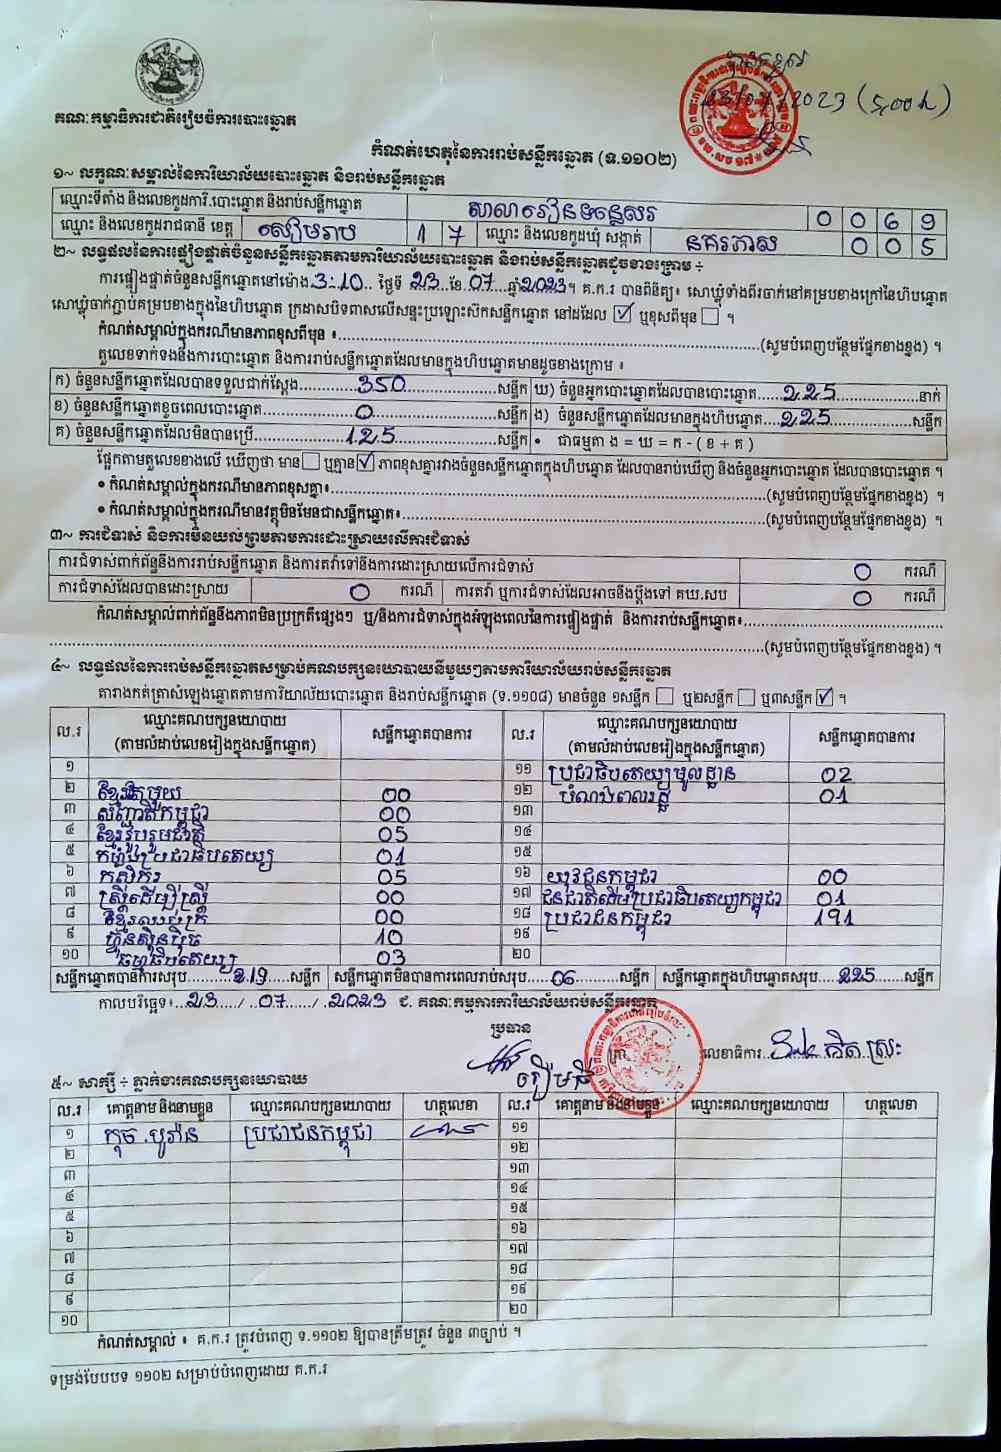 ២3/07/2023 (5:00 h)
គណៈកម្មាធិការជាតិរៀបចំការបោះឆ្នោត
កំណត់ហេតុនៃការរាប់សន្លឹកឆ្នោត (ទ.១១០២)
១~ លក្ខណៈសម្គាល់នៃការិយាល័យបោះឆ្នោត និងរាប់សន្លឹកឆ្នោត
ឈ្មោះទីតាំង និងលេខកូដការិ.បោះឆ្នោត និងរាប់សន្លឹកឆ្នោត សាលារៀនទន្លេសរ 0 0 6 9
ឈ្មោះ និងលេខកូដរាជធានី ខេត្ត សៀមរាប 1 7 ឈ្មោះ និងលេខកូដឃុំ សង្កាត់ នគរភាស 0 0 5
២~ លទ្ធផលនៃការផ្ទៀងផ្ទាត់ចំនួនសន្លឹកឆ្នោតតាមការិយាល័យបោះឆ្នោត និងរាប់សន្លឹកឆ្នោតដូចខាងក្រោម ÷
ការផ្ទៀងផ្ទាត់ចំនួនសន្លឹកឆ្នោតនៅម៉ោង 3:10 ថ្ងៃទី 23 ខែ 07 ឆ្នាំ 2023 ។ គ.ក.រ បានពិនិត្យ៖ សោឃ្លុំទាំងពីរចាក់នៅគម្របខាងក្រៅនៃហិបឆ្នោត
សោឃ្លុំចាក់ភ្ជាប់គម្របខាងក្នុងនៃហិបឆ្នោត ក្រដាសបិទពាសលើសន្ទះប្រឡោះស៊កសន្លឹកឆ្នោត នៅដដែល ☑ ឬខុសពីមុន ☐ ។
កំណត់សម្គាល់ក្នុងករណីមានភាពខុសពីមុន ៖ (សូមបំពេញបន្ថែមផ្នែកខាងខ្នង) ។
តួលេខទាក់ទងនឹងការបោះឆ្នោត និងការរាប់សន្លឹកឆ្នោតដែលមានក្នុងហិបឆ្នោតមានដូចខាងក្រោម ៖
ក) ចំនួនសន្លឹកឆ្នោតដែលបានទទួលជាក់ស្តែង 350 សន្លឹក ឃ) ចំនួនអ្នកបោះឆ្នោតដែលបានបោះឆ្នោត 225 នាក់
ខ) ចំនួនសន្លឹកឆ្នោតខូចពេលបោះឆ្នោត 0 សន្លឹក ង) ចំនួនសន្លឹកឆ្នោតដែលមានក្នុងហិបឆ្នោត 225 សន្លឹក
គ) ចំនួនសន្លឹកឆ្នោតដែលមិនបានប្រើ 125 សន្លឹក • ជាធម្មតា ង = ឃ = ក - ( ខ + គ )
ផ្អែកតាមតួលេខខាងលើ ឃើញថា មាន ☐ ឬគ្មាន ☑ ភាពខុសគ្នារវាងចំនួនសន្លឹកឆ្នោតក្នុងហិបឆ្នោត ដែលបានរាប់ឃើញ និងចំនួនអ្នកបោះឆ្នោត ដែលបានបោះឆ្នោត ។
• កំណត់សម្គាល់ក្នុងករណីមានភាពខុសគ្នា៖ (សូមបំពេញបន្ថែមផ្នែកខាងខ្នង) ។
• កំណត់សម្គាល់ក្នុងករណីមានវត្ថុមិនមែនជាសន្លឹកឆ្នោត៖ (សូមបំពេញបន្ថែមផ្នែកខាងខ្នង) ។
៣~ ការជំទាស់ និងការមិនយល់ព្រមតាមការដោះស្រាយលើការជំទាស់
ការជំទាស់ពាក់ព័ន្ធនឹងការរាប់សន្លឹកឆ្នោត និងការតវ៉ាទៅនឹងការដោះស្រាយលើការជំទាស់ 0 ករណី
ការជំទាស់ដែលបានដោះស្រាយ 0 ករណី ការតវ៉ា ឬការជំទាស់ដែលអាចនឹងប្តឹងទៅ គឃ.សប 0 ករណី
កំណត់សម្គាល់ពាក់ព័ន្ធនឹងភាពមិនប្រក្រតីផ្សេងៗ ឬ/និងការជំទាស់ក្នុងអំឡុងពេលនៃការផ្ទៀងផ្ទាត់ និងការរាប់សន្លឹកឆ្នោត៖
(សូមបំពេញបន្ថែមផ្នែកខាងខ្នង) ។
៤~ លទ្ធផលនៃការរាប់សន្លឹកឆ្នោតសម្រាប់គណបក្សនយោបាយនីមួយៗតាមការិយាល័យរាប់សន្លឹកឆ្នោត
តារាងកត់ត្រាសំឡេងឆ្នោតតាមការិយាល័យបោះឆ្នោត និងរាប់សន្លឹកឆ្នោត (ទ.១១០៨) មានចំនួន ១សន្លឹក ☐ ឬ២សន្លឹក ☐ ឬ៣សន្លឹក ☑ ។
ល.រ ឈ្មោះគណបក្សនយោបាយ (តាមលំដាប់លេខរៀងក្នុងសន្លឹកឆ្នោត) សន្លឹកឆ្នោតបានការ ល.រ ឈ្មោះគណបក្សនយោបាយ (តាមលំដាប់លេខរៀងក្នុងសន្លឹកឆ្នោត) សន្លឹកឆ្នោតបានការ
១ ១១ ប្រជាធិបតេយ្យមូលដ្ឋាន 02
២ ខ្មែរតែមួយ 00 ១២ បំណងពលរដ្ឋ 01
៣ សញ្ជាតិកម្ពុជា 00 ១៣
៤ ខ្មែររួបរួមជាតិ 05 ១៤
៥ កម្លាំងប្រជាធិបតេយ្យ 01 ១៥
៦ កសិករ 05 ១៦ យុវជនកម្ពុជា 00
៧ ស្ត្រីដើម្បីស្ត្រី 00 ១៧ ជនជាតិដើមប្រជាធិបតេយ្យកម្ពុជា 01
៨ ខ្មែរឈប់ក្រ 00 ១៨ ប្រជាជនកម្ពុជា 191
៩ ហ៊្វុនស៊ិនប៉ិច 10 ១៩
១០ ធម្មាធិបតេយ្យ 03 ២០
សន្លឹកឆ្នោតបានការសរុប 219 សន្លឹក សន្លឹកឆ្នោតមិនបានការពេលរាប់សរុប 06 សន្លឹក សន្លឹកឆ្នោតក្នុងហិបឆ្នោតសរុប 225 សន្លឹក
កាលបរិច្ឆេទ៖ 23 / 07 / 2023 ជ. គណៈកម្មការការិយាល័យរាប់សន្លឹកឆ្នោត
ប្រធាន
លេខាធិការ
៥~ សាក្សី ÷ ភ្នាក់ងារគណបក្សនយោបាយ
ល.រ គោត្តនាម និងនាមខ្លួន ឈ្មោះគណបក្សនយោបាយ ហត្ថលេខា ល.រ គោត្តនាម និងនាមខ្លួន ឈ្មោះគណបក្សនយោបាយ ហត្ថលេខា
១ កុច បូរ៉ាន ប្រជាជនកម្ពុជា ១១
២ ១២
៣ ១៣
៤ ១៤
៥ ១៥
៦ ១៦
៧ ១៧
៨ ១៨
៩ ១៩
១០ ២០
កំណត់សម្គាល់ ៖ គ.ក.រ ត្រូវបំពេញ ទ.១១០២ ឱ្យបានត្រឹមត្រូវ ចំនួន ៣ច្បាប់ ។
ទម្រង់បែបបទ ១១០២ សម្រាប់បំពេញដោយ គ.ក.រ